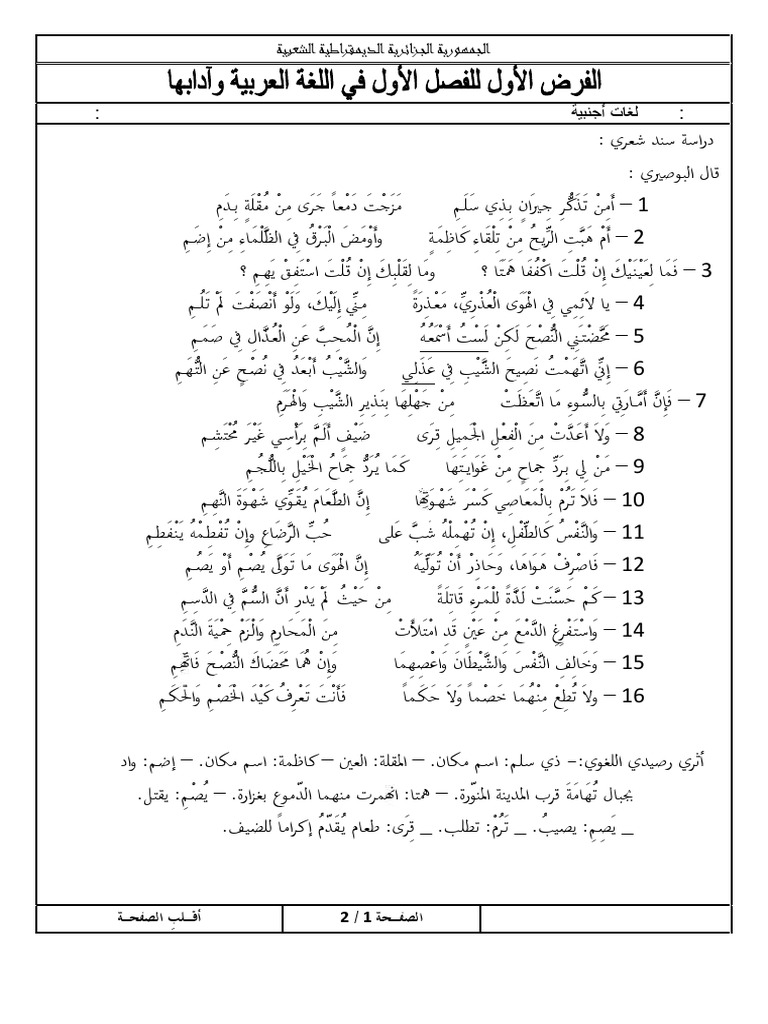 الجمهورية الجزائرية الديمقراطية الشعبية
الفرض الأول للفصل الأول في اللغة العربية وآدابها
: لغات أجنبية :
دراسة سند شعري :
قال البوصيري :
1 – أَمِنْ تَذَكُّرِ جِيرَانٍ بِذِي سَلَمِ مَزَجْتَ دَمْعاً جَرَى مِنْ مُقْلَةٍ بِدَمِ
2 – أَمْ هَبَّتِ الرِّيحُ مِنْ تِلْقَاءِ كَاظِمَةٍ وَأَوْمَضَ الْبَرْقُ فِي الظَّلْمَاءِ مِنْ إِضَمِ
3 – فَمَا لِعَيْنَيْكَ إِنْ قُلْتَ اكْفُفَا هَمَتَا ؟ وما لِقَلْبِكَ إِنْ قُلْتَ اسْتَفِقْ يَهِمِ ؟
4 – يا لاَئِمِي فِي الْهَوَى الْعُذْرِيِّ، مَعْذِرَةً مِنِّي إِلَيْكَ، وَلَوْ أَنْصَفْتَ لَمْ تَلُمِ
5 – مَحَّضْتَنِي النُّصْحَ لَكِنْ لَسْتُ أَسْمَعُهُ إِنَّ الْمُحِبَّ عَنِ الْعُذَّالِ فِي صَمَمِ
6 – إِنِّي اتَّهَمْتُ نَصِيحَ الشَّيْبِ فِي عَذَلِي وَالشَّيْبُ أَبْعَدُ فِي نُصْحٍ عَنِ التُّهَمِ
7 – فَإِنَّ أَمَّارَتِي بِالسُّوءِ مَا اتَّعَظَتْ مِنْ جَهْلِهَا بِنَذِيرِ الشَّيْبِ وَالْهَرَمِ
8 – وَلاَ أَعَدَّتْ مِنَ الْفِعْلِ الْجَمِيلِ قِرَى ضَيْفٍ أَلَمَّ بِرَأْسِي غَيْرَ مُحْتَشِمِ
9 – مَنْ لِي بِرَدِّ جِمَاحٍ مِنْ غَوَايَتِهَا كَمَا يُرَدُّ جِمَاحُ الْخَيْلِ بِاللُّجُمِ
10 – فَلاَ تَرُمْ بِالْمَعَاصِي كَسْرَ شَهْوَتِهَا إِنَّ الطَّعَامَ يُقَوِّي شَهْوَةَ النَّهِمِ
11 – وَالنَّفْسُ كَالطِّفْلِ، إِنْ تُهْمِلْهُ شَبَّ عَلى حُبِّ الرَّضَاعِ وإِنْ تُفْطِمْهُ يَنْفَطِمِ
12 – فَاصْرِفْ هَوَاهَا، وَحَاذِرْ أَنْ تُوَلِّيَهُ إِنَّ الْهَوَى مَا تَوَلَّى يُصْمِ أَوْ يَصُمِ
13 – كَمْ حَسَّنَتْ لَذَّةً لِلْمَرْءِ قَاتِلَةً مِنْ حَيْثُ لَمْ يَدْرِ أَنَّ السُّمَّ فِي الدَّسِمِ
14 – وَاسْتَفْرِغِ الدَّمْعَ مِنْ عَيْنٍ قَدِ امْتَلَأَتْ مِنَ الْمَحَارِمِ وَالْزَمْ حِمْيَةَ النَّدَمِ
15 – وَخَالِفِ النَّفْسَ وَالشَّيْطَانَ وَاعْصِهِمَا وَإِنْ هُمَا مَحَضَاكَ النُّصْحَ فَاتَّهِمِ
16 – ولاَ تُطِعْ مِنْهُمَا خَصْماً وَلاَ حَكَماً فَأَنْتَ تَعْرِفُ كَيْدَ الْخَصْمِ وَالْحَكَمِ
أثري رصيدي اللغوي:– ذي سلم: اسم مكان. – المقلة: العين –كاظمة: اسم مكان. – إضم: واد
بجبال تُهَامَةَ قرب المدينة المنوّرة. – همتا: انهمرت منهما الدّموع بغزارة. – يُصْمِ: يقتل.
_ يَصِمِ: يصيبُ. _ تَرُمْ: تطلب. _ قِرَى: طعام يُقَدَّمُ إكراماً للضيف.
الصفــحة 1 / 2 أقــلبِ الصفحــة